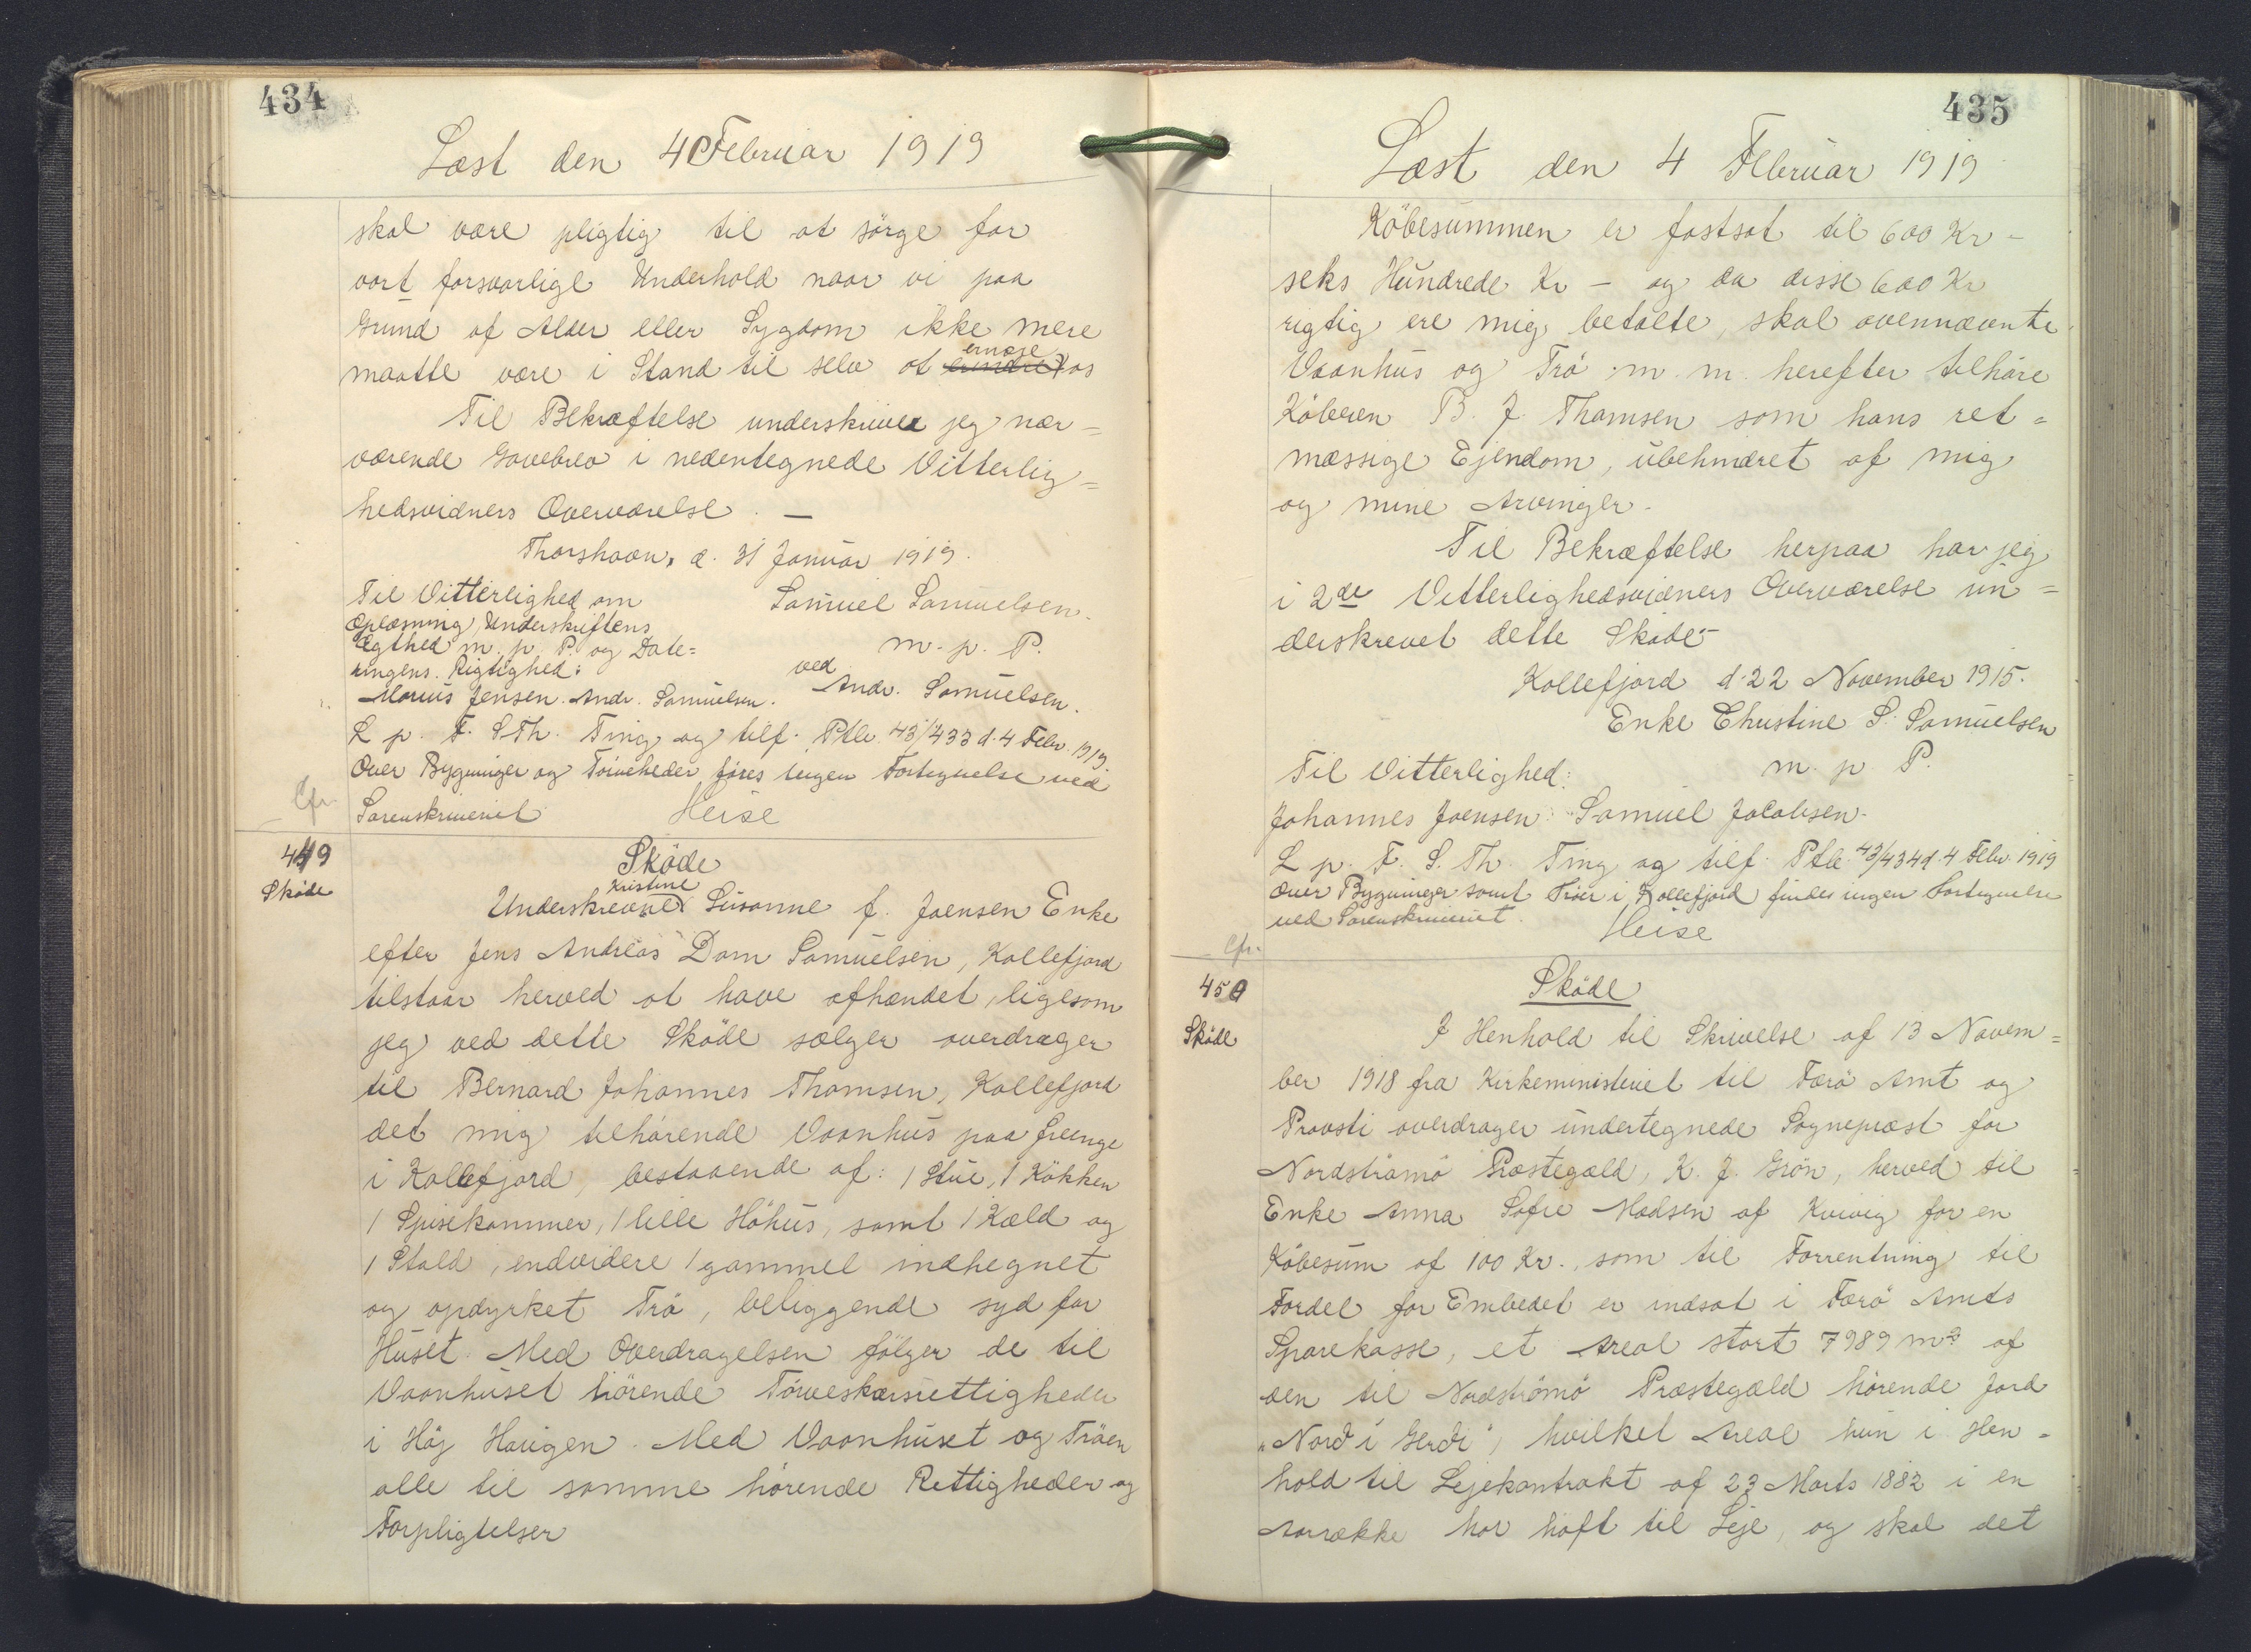 434
Læst den 4 Februar 1919
skal være pligtig til at sörge for
vort forsvarlige Underhold naar vi paa
Grund af Alder eller Sygdom ikke mere
maatte være i Stand til selv at ernære os
Til Bekræftelse underskriver jeg nær=
værende Gavebrev i nedentegnede Vitterlig=
hedsvidners Overværelse. —
Thorshavn, d. 31 Januar 1919.
Til Vitterlighed om
Oplæsning, Underskriftens
Ægthed m. p. P. og Date=
ringens Rigtighed:
Samuel Samuelsen.
m. p. P.
ved
Andr. Samuelsen.
Marius Jensen. Andr. Samuelsen.
L p. F. S. Th. Ting og tilf. Ptle. 43/433 d. 4 Febr. 1919.
Over Bygninger og Torveheder föres ingen Fortegnelse ved
Cfr.
Sorenskriveriet
Heise
449
Sköde
Sköde
Kristine
Underskrevne Susanne f. Joensen Enke
efter Jens Andreas Dam Samuelsen, Kollefjord
tilstaar herved at have afhændet, ligesom
jeg ved dette Sköde sælger overdrager
til Bernard Johannes Thomsen, Kollefjord
det mig tilhörende Vaanhus paa
i Kollefjord, bestaaende af: 1 Stue, 1 Kökken
1 Spisekammer, 1 lille Höhus, samt 1 Kæld og
1 Stald, endvidere 1 gammel indhegnet
og opdyrket Trö, beliggende syd for
Huset. Med Overdragelsen fölger de til
Vaanhuset hörende Törveskærsrettigheder
i Höj Haugen. Med Vaanhuset og Tröen
alle til samme hörende Rettigheder og
Forpligtelser
435
Læst den 4 Februar 1919
Köbesummen er fastsat til 600 Kr –
seks Hundrede Kr – og da disse 600 Kr
rigtig ere mig betalte, skal ovennævnte
Vaanhus og Trö m. m. herefter tilhöre
Köberen B. J. Thomsen som hans ret=
mæssige Ejendom, ubehindret af mig
og mine Arvinger.
Til Bekræftelse herpaa har jeg
i 2de Vitterlighedsvidners Overværelse un=
derskrevet dette Sköde –
Kollefjord d. 22 November 1915.
Enke Christine S. Samuelsen
m. p. P.
Til Vitterlighed:
Johannes Joensen. Samuel Jacobsen.
L p. F. S. Th. Ting og tilf. Ptle. 43/434 d. 4 Febr. 1919
Over Bygninger samt Tröer i Kollefjord findes ingen Fortegnelse
ved Sorenskriveriet.
Heise
Cfr.
450
Sköde
Sköde
I Henhold til Skrivelse af 13 Novem=
ber 1918 fra Kirkeministeriet til Færö Amt og
Provsti overdrager undertegnede Sognepræst for
Nordströmö Præstegæld, K. J. Grön, herved til
Enke Anna Sofie Madsen af Kvivig for en
Köbesum af 100 Kr., som til Forrentning til
Fordel for Embedet er indsat i Færö Amts
Sparekasse, et Areal stort 7989 m² af
den til Nordströmö Præstegæld hörende Jord
„Nord i Gerdi“, hvilket Areal hun i Hen=
hold til Lejekontrakt af 23 Marts 1882 i en
Aarrække har haft til Leje, og skal det